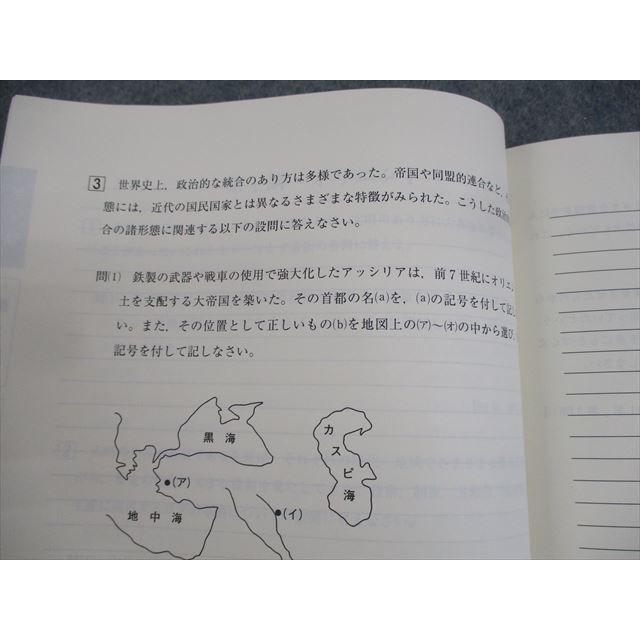 3 世界史上，政治的な統合のあり方は多様であった。帝国や同盟的連合など，
態には，近代の国民国家とは異なるさまざまな特徴がみられた。こうした政治
合の諸形態に関連する以下の設問に答えなさい。
問(1) 鉄製の武器や戦車の使用で強大化したアッシリアは，前7世紀にオリエン
土を支配する大帝国を築いた。その首都の名(a)を，(a)の記号を付して記し
い。また，その位置として正しいもの(b)を地図上の(ア)〜(オ)の中から選び，
記号を付して記しなさい。
黒海
カスピ海
●(ア)
地中海
●(イ)